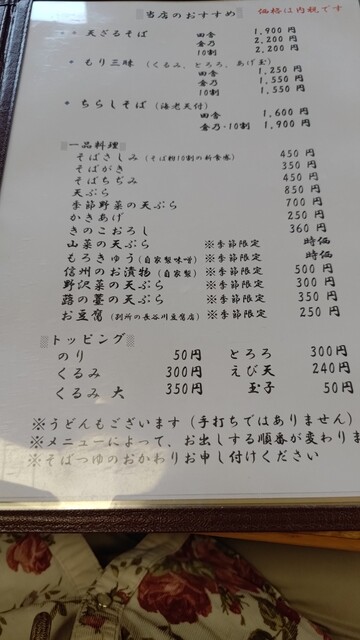 当店のおすすめ 価格は内税です
* * 天ざるそば 田舎 1,900円
更乃 2,200円
10割 2,200円
* もり三昧 (くるみ、とろろ、あげ玉)
田舎 1,250円
更乃 1,550円
10割 1,550円
* ちらしそば (海老天付)
田舎 1,600円
更乃・10割 1,900円
一品料理
そばさしみ (そば粉10割の新食感) 450円
そばがき 350円
そばちぢみ 450円
天ぷら 850円
季節野菜の天ぷら 700円
かきあげ 250円
きのこおろし 360円
山菜の天ぷら ※季節限定 時価
もろきゅう (自家製味噌) ※季節限定 時価
信州のお漬物 (自家製) ※季節限定 500円
野沢菜の天ぷら ※季節限定 300円
蕗の薹の天ぷら ※季節限定 350円
お豆腐 (別所の長谷川豆腐店) ※季節限定 250円
トッピング
のり 50円 とろろ 300円
くるみ 300円 えび天 240円
くるみ 大 350円 玉子 50円
※うどんもございます (手打ちではありません)
※メニューによって、お出しする順番が変わりま
※そばつゆのおかわりお申し付けください